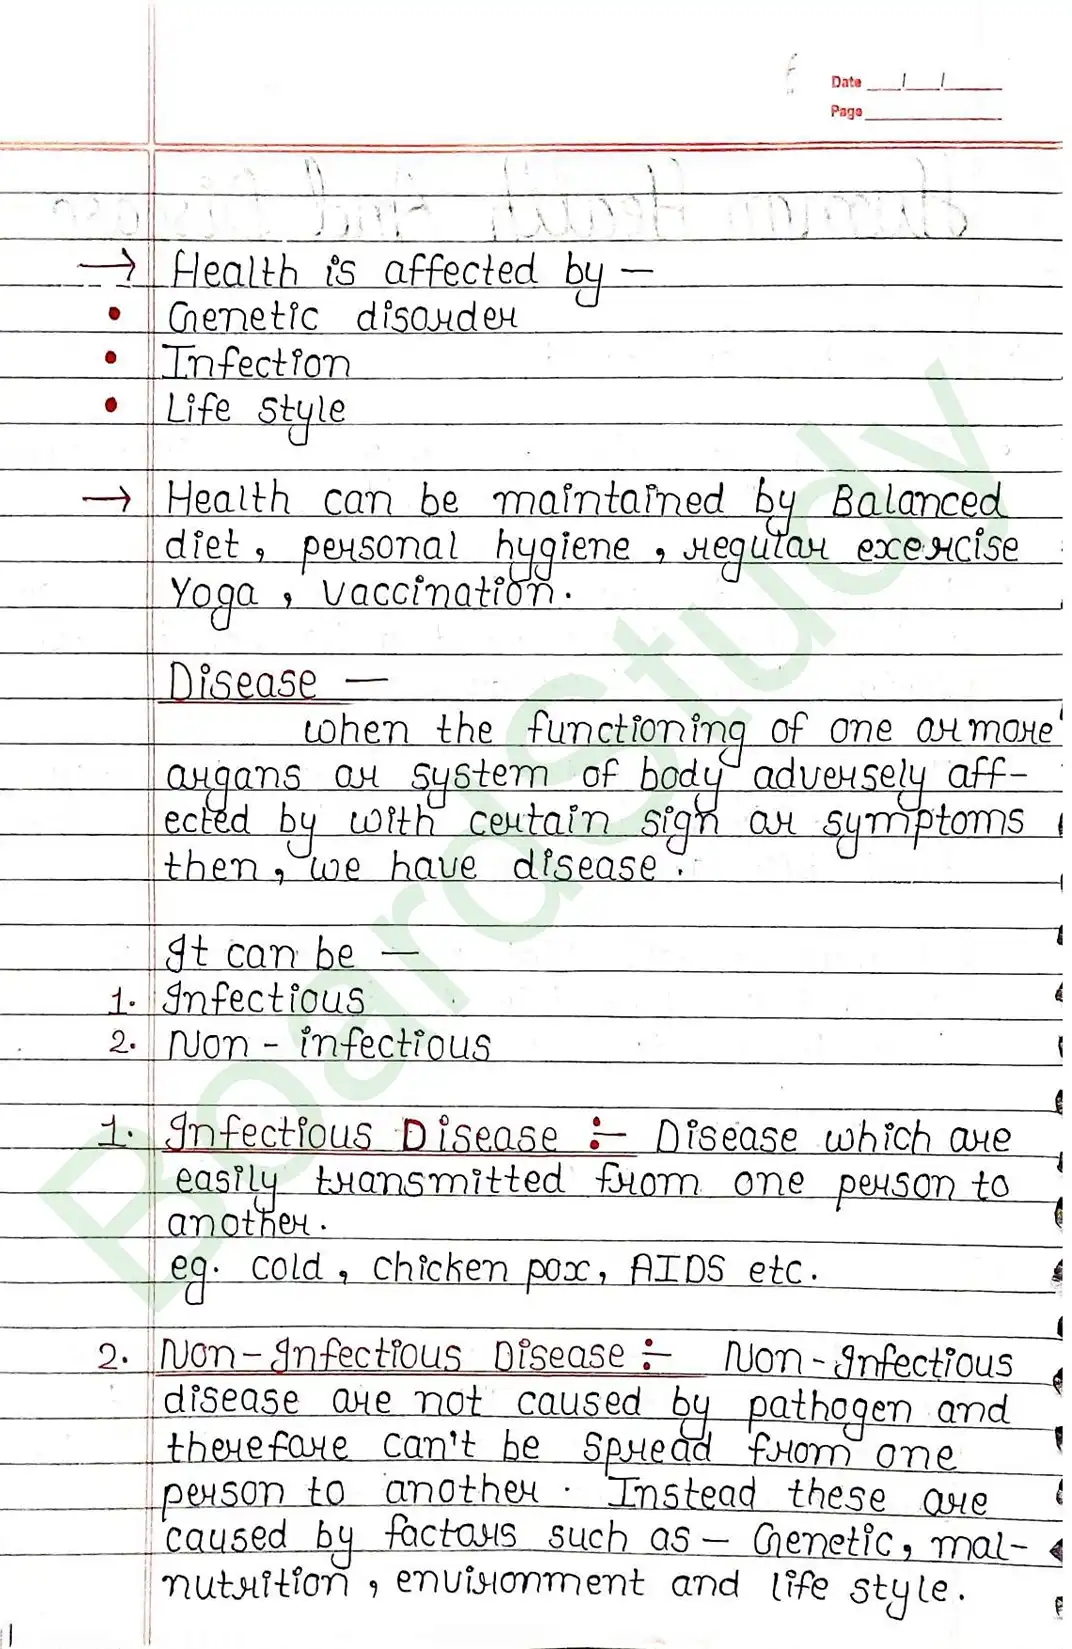 Date / /
Page
→ Health is affected by —
• Genetic disorder
• Infection
• Life style
→ Health can be maintained by Balanced
diet, personal hygiene, regular exercise
Yoga, Vaccination.
Disease —
when the functioning of one or more
organs or system of body adversely aff-
ected by with certain sign or symptoms
then, we have disease.
It can be —
1. Infectious
2. Non - infectious
1. Infectious Disease :- Disease which are
easily transmitted from one person to
another.
eg. cold, chicken pox, AIDS etc.
2. Non-Infectious Disease :- Non-Infectious
disease are not caused by pathogen and
therefore can't be spread from one
person to another. Instead these are
caused by factors such as — Genetic, mal-
nutrition, environment and life style.
BoardStudy